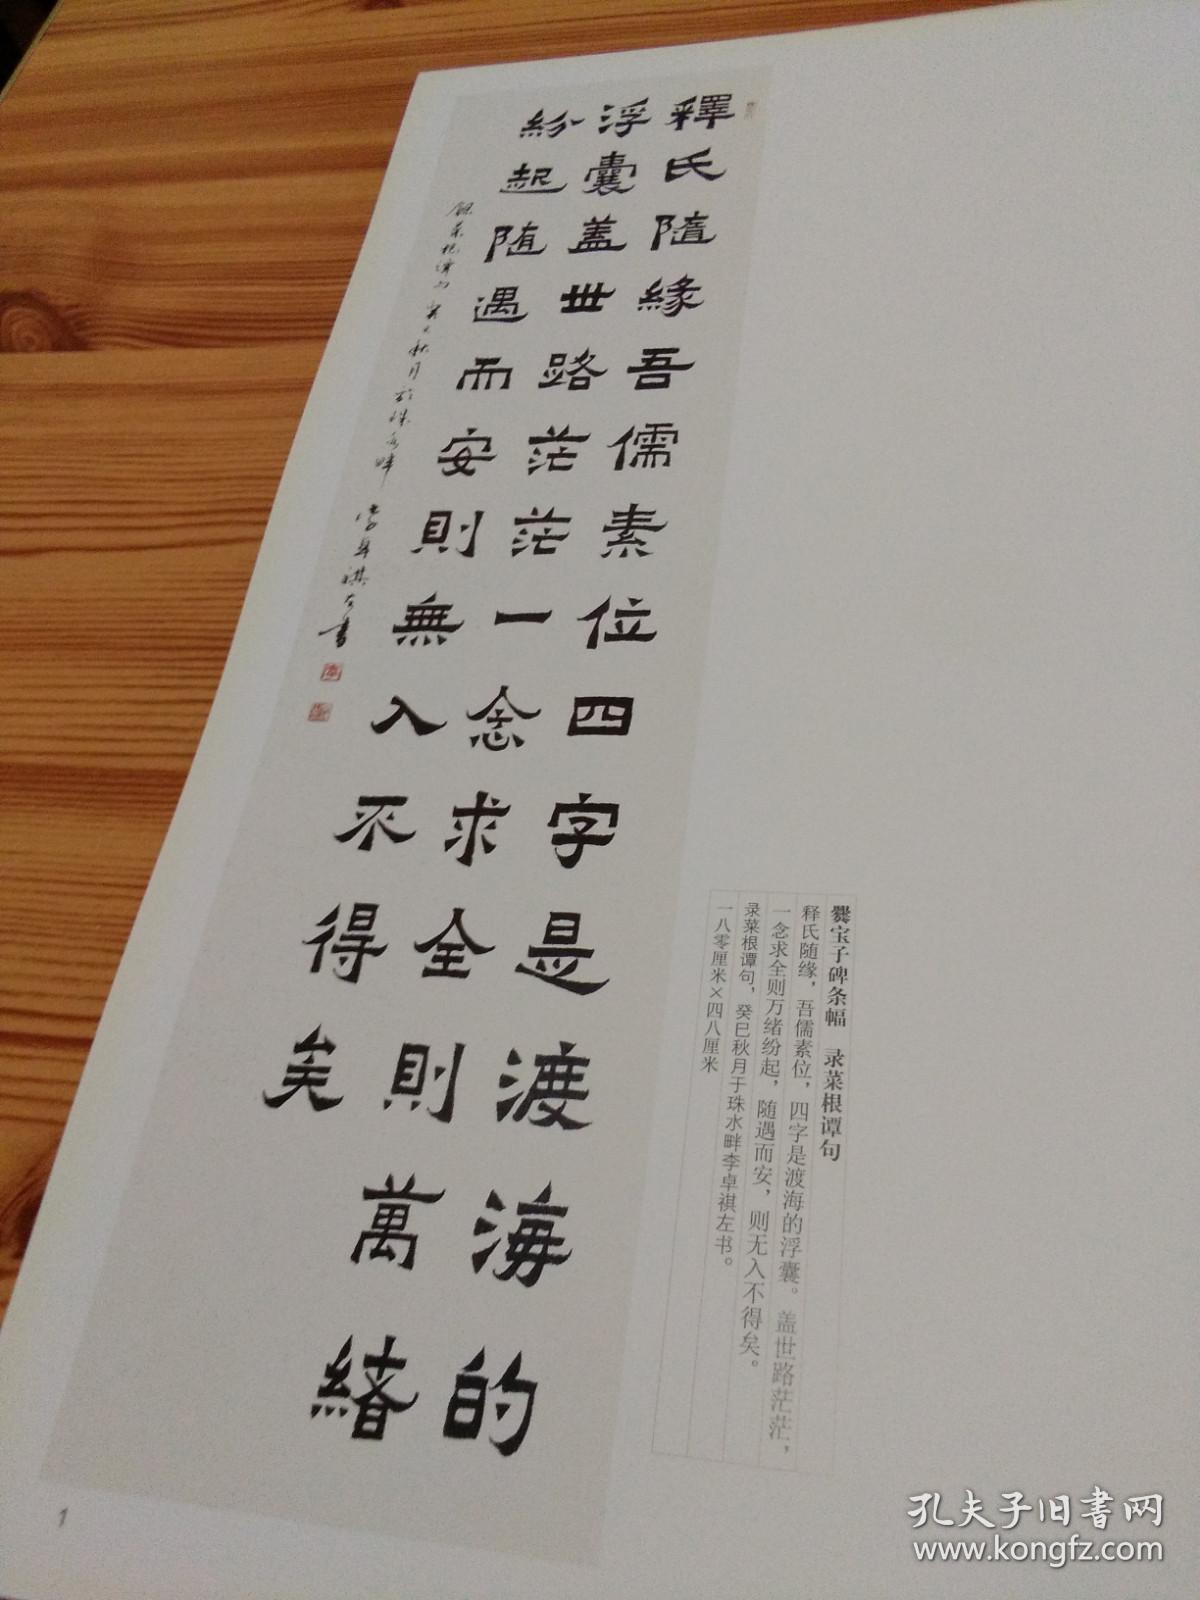 釋氏隨緣吾儒素位四字是渡海的
浮囊蓋世路茫茫一念求全則萬緒
紛起随遇而安則無入不得矣
錄菜根譚句 癸巳秋月於珠水畔 李卓祺左書
爨宝子碑条幅 录菜根谭句
释氏随缘，吾儒素位，四字是渡海的浮囊。盖世路茫茫，
一念求全则万绪纷起，随遇而安，则无入不得矣。
录菜根谭句，癸巳秋月于珠水畔李卓祺左书。
一八零厘米×四八厘米
1
孔夫子旧书网
www.kongfz.com